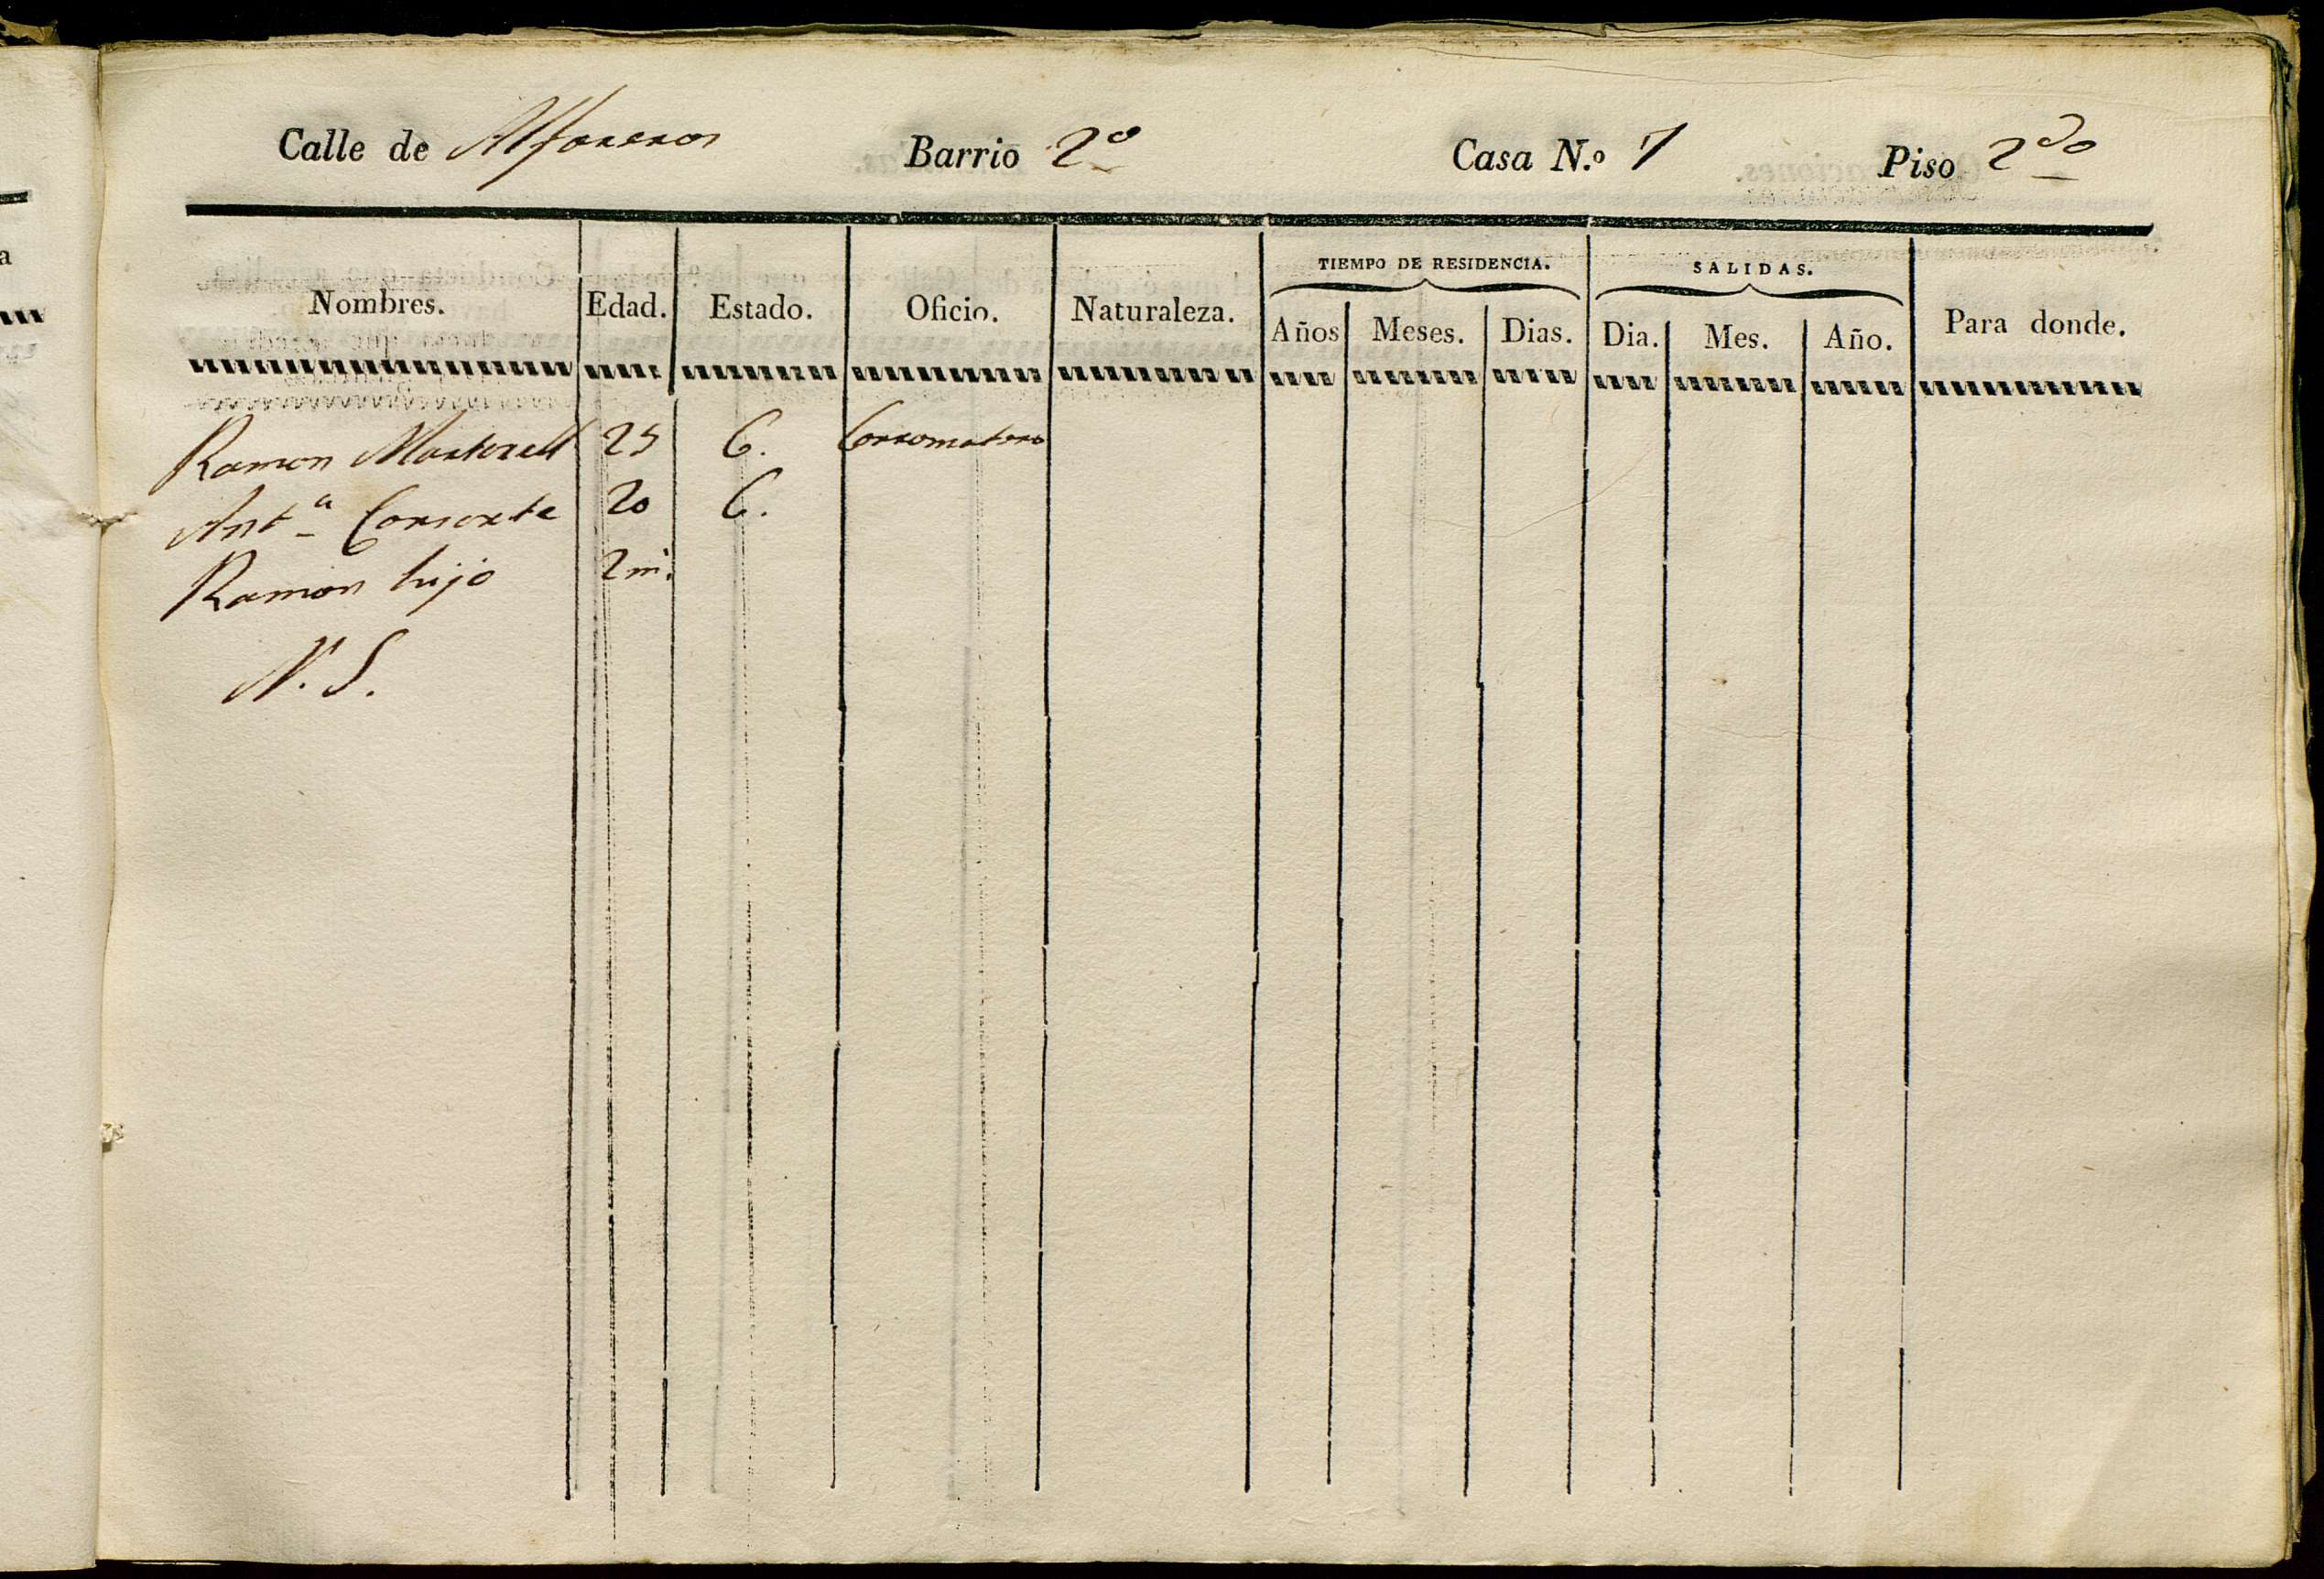 Calle de Alfareros Barrio 2º Casa N.º 7 Piso 2do
Nombres. Edad. Estado. Oficio. Naturaleza. TIEMPO DE RESIDENCIA. Años Meses. Dias. SALIDAS. Dia. Mes. Año. Para donde.
Ramon Martorell 25 C. Corromatero
Antª Consorte 20 C.
Ramon hijo 2 m.
N. S.